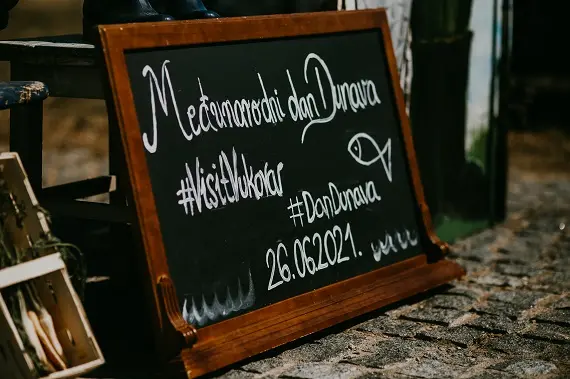 Međunarodni dan Dunava
#VisitVukovar
#DanDunava
26.06.2021.